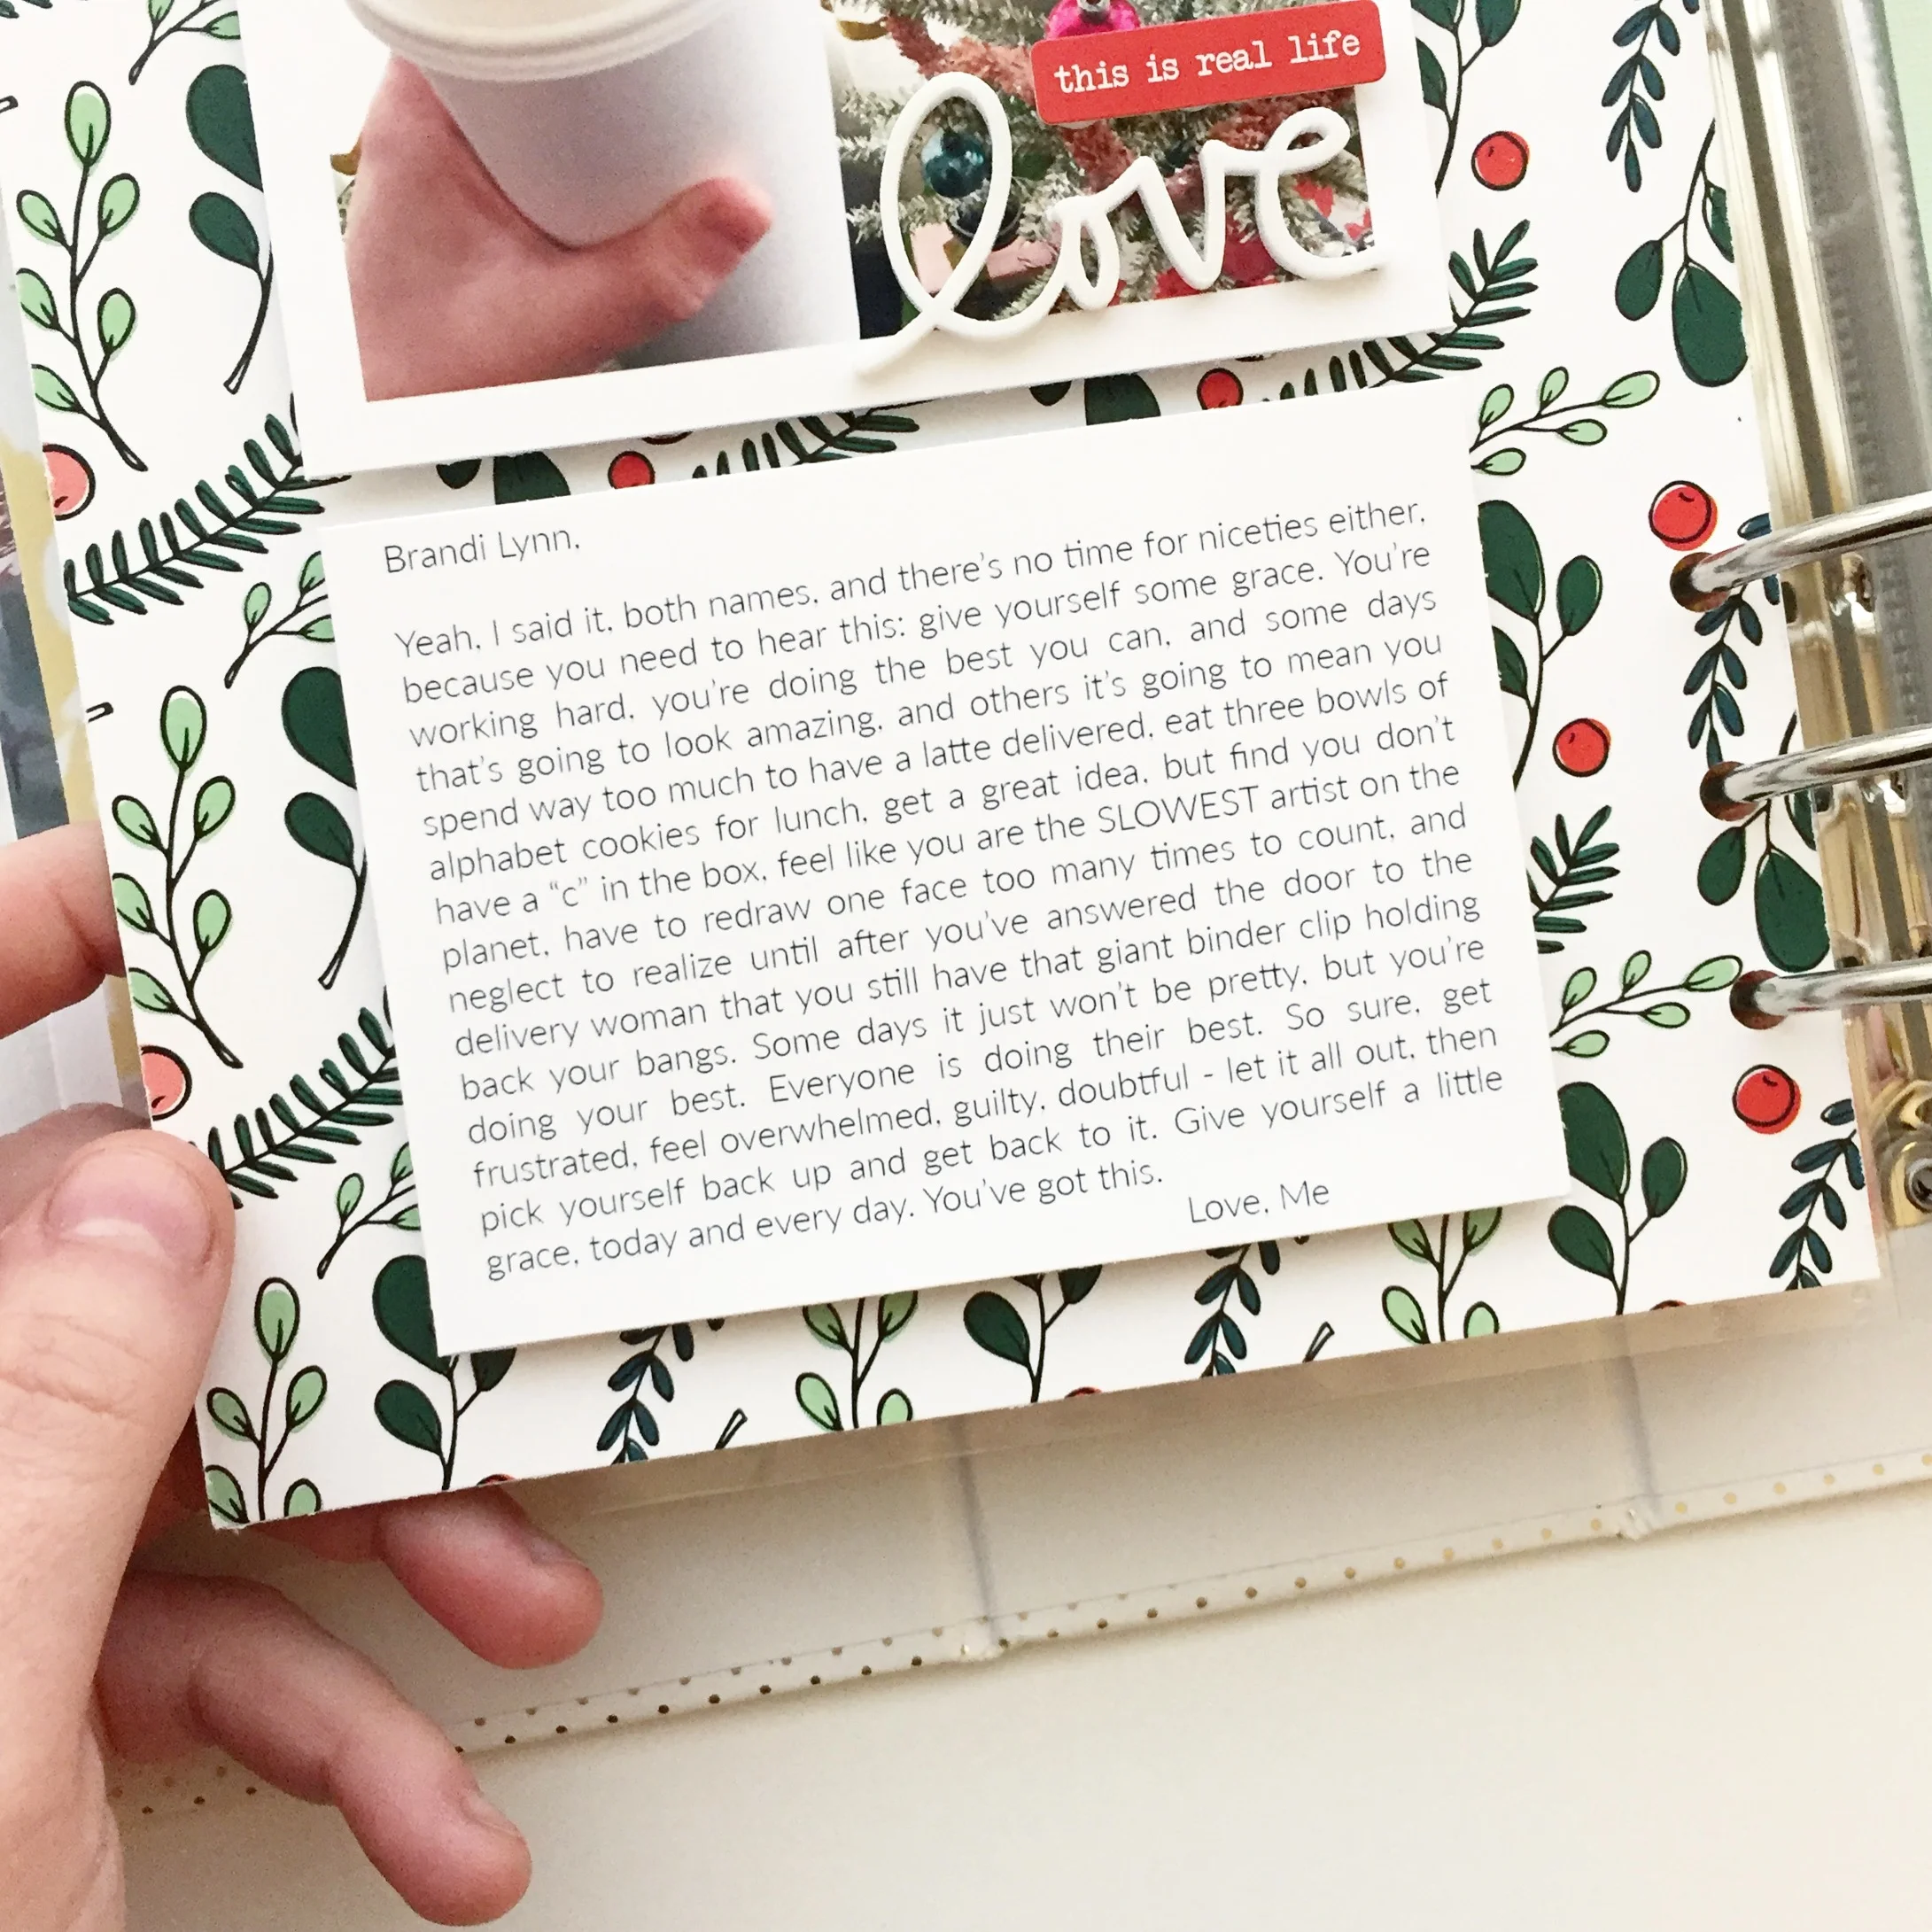 this is real life
love
Brandi Lynn,
Yeah, I said it, both names, and there's no time for niceties either,
because you need to hear this: give yourself some grace. You're
working hard, you're doing the best you can, and some days
that's going to look amazing, and others it's going to mean you
spend way too much to have a latte delivered, eat three bowls of
alphabet cookies for lunch, get a great idea, but find you don't
have a “c” in the box, feel like you are the SLOWEST artist on the
planet, have to redraw one face too many times to count, and
neglect to realize until after you've answered the door to the
delivery woman that you still have that giant binder clip holding
back your bangs. Some days it just won't be pretty, but you're
doing your best. Everyone is doing their best. So sure, get
frustrated, feel overwhelmed, guilty, doubtful - let it all out, then
pick yourself back up and get back to it. Give yourself a little
grace, today and every day. You've got this.
Love, Me